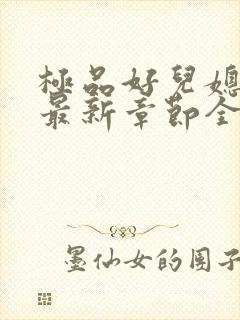 極品好兒媳
最新章節全
墨仙女的園子